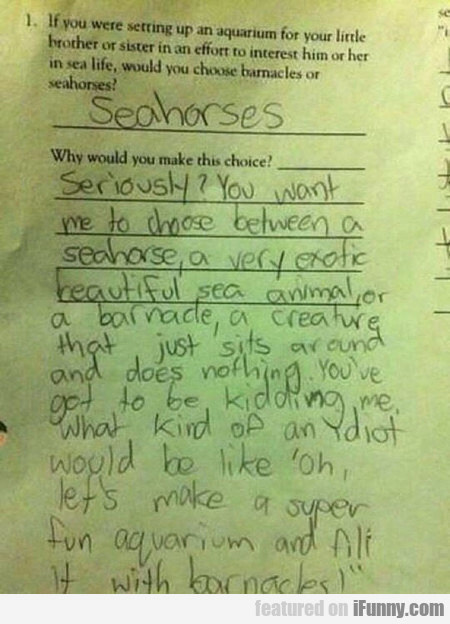 1. If you were setting up an aquarium for your little
brother or sister in an effort to interest him or her
in sea life, would you choose barnacles or
seahorses?
Seahorses
Why would you make this choice?
Seriously? You want
me to choose between a
seahorse, a very exotic
beautiful sea animal, or
a barnacle, a creature
that just sits around
and does nothing. You've
got to be kidding me.
What kind of an idiot
would be like 'oh,
let's make a super
fun aquarium and fill
it with barnacles!"
featured on iFunny.com